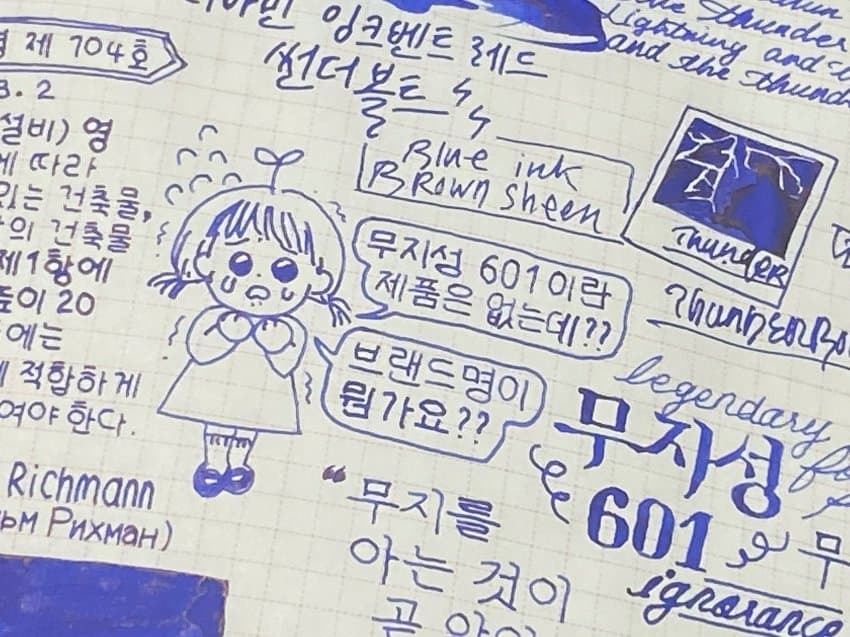 잉크벤트 레드
썬더볼트
Blue ink
Brown sheen
the thunder
lightning and
and the thunder
제 704호
3. 2
설비) 영
따라
있는 건축물,
의 건축물
제1항에
높이 20
에는
적합하게
여야 한다.
Richmann
Рихман)
무지성 601이란
제품은 없는데??
브랜드명이
뭔가요??
Thunder
legendary
무지성
601
무
ignorance
“무지를
아는 것이
곧